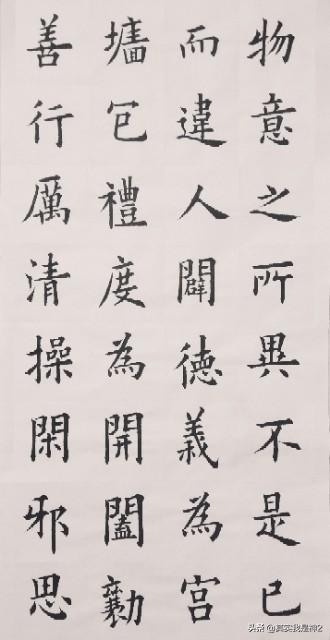 物意之所異不是已
而違人闢德義為宮
墻包禮度為開闔勷
善行厲清操閑邪思
头条 @真实我是神2